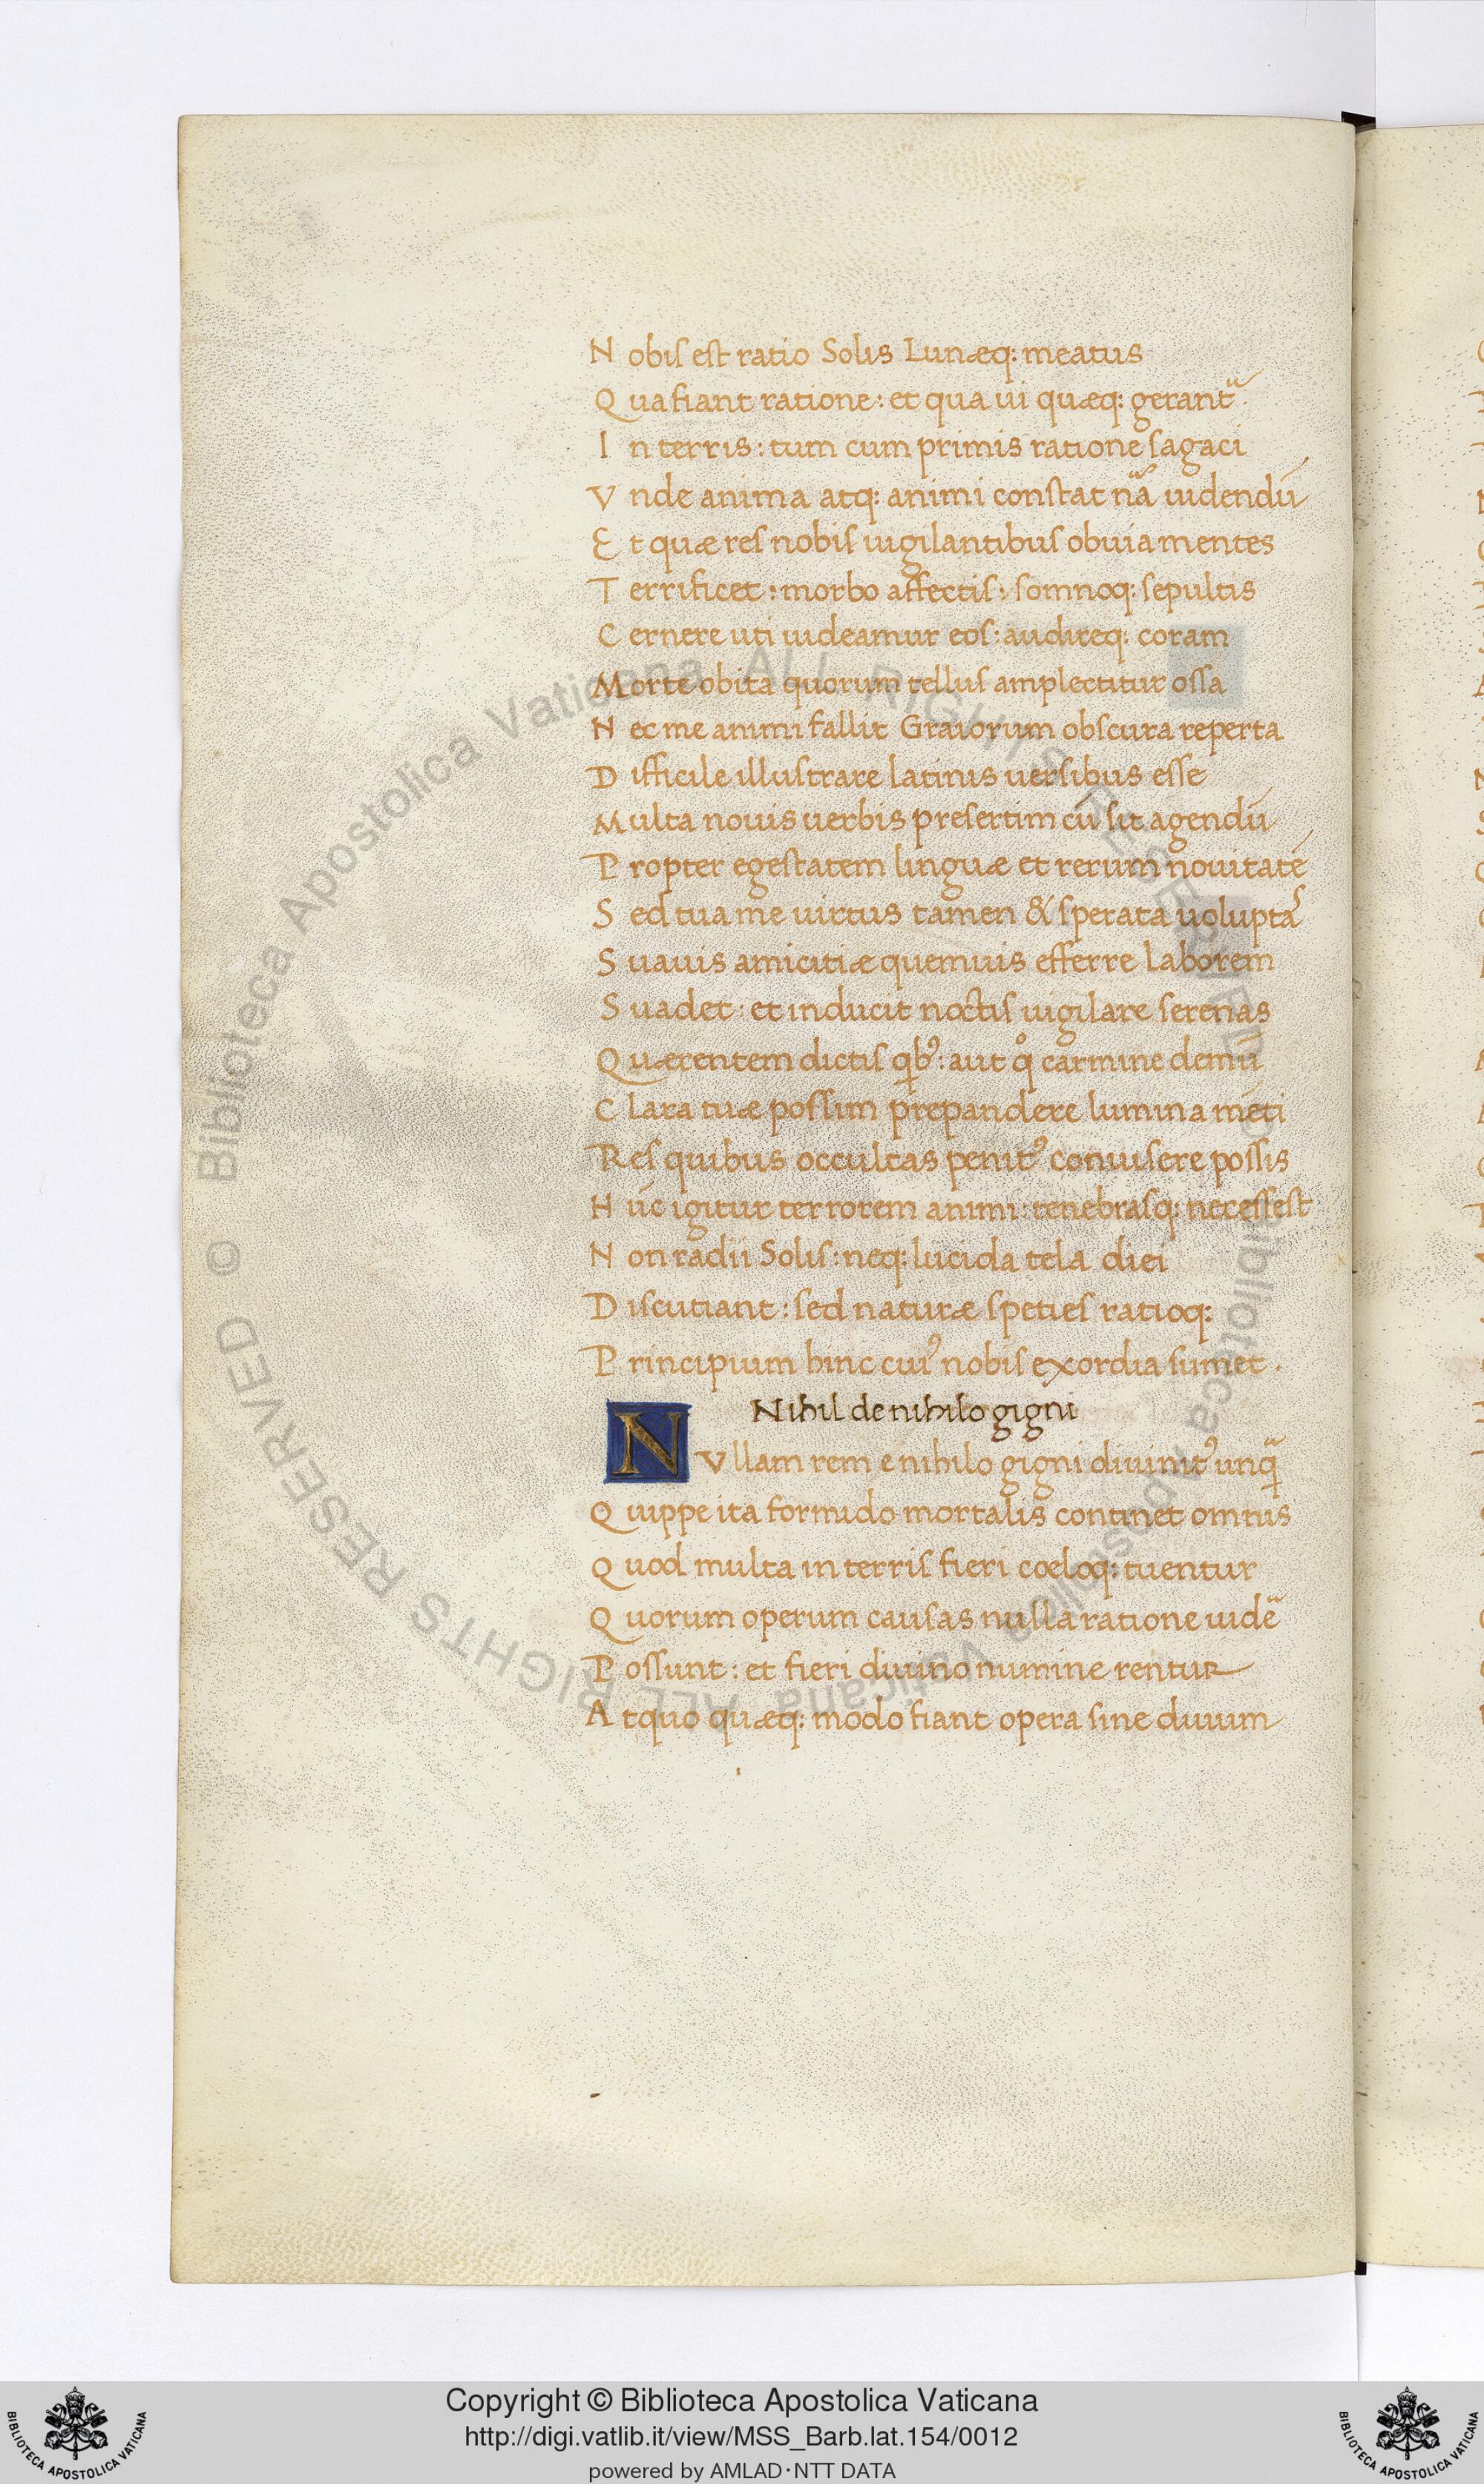 N obis est ratio Solis Lunæq: meatus
Q ua fiant ratione: et qua ui quæq: gerant᷑
I n terris: tum cum primis ratione sagaci
V nde anima atq: animi constat nã uidendũ
E t quæ res nobis uigilantibus obuia mentes
T errificet: morbo affectis: somnoq: sepultis
C ernere uti uideamur eos: audireq: coram
M orte obita quorum tellus amplectitur ossa
N ec me animi fallit Graiorum obscura reperta
D ifficile illustrare latinis uersibus esse
M ulta nouis uerbis presertim cũ sit agendũ
P ropter egestatem linguæ et rerum nouitatẽ
S ed tua me uirtus tamen & sperata uoluptaˢ
S uauis amicitiæ quemuis efferre laborem
S uadet: et inducit noctis uigilare serenas
Q uærentem dictis qbꝰ: aut qͦ carmine demũ
C lara tuæ possim prepandere lumina mẽti
R es quibus occultas penitꝰ conuisere possis
H ũc igitur terrorem animi: tenebrasq: necessest
N on radii Solis: neq: lucida tela diei
D iscutiant: sed naturæ speties ratioq:
P rincipium hinc cuiꝰ nobis exordia sumet.
Nihil de nihilo gigni
N Vllam rem e nihilo gigni diuinitꝰ unqᷓ
Q uippe ita formido mortalis continet omnis
Q uod multa in terris fieri cœloq: tuentur
Q uorum operum causas nulla ratione uidẽ
P ossunt: et fieri diuino numine rentur
A tquo quæq: modo fiant opera sine diuum
© Biblioteca Apostolica Vaticana ALL RIGHTS RESERVED
© Biblioteca Apostolica Vaticana ALL RIGHTS RESERVED
Copyright © Biblioteca Apostolica Vaticana
http://digi.vatlib.it/view/MSS_Barb.lat.154/0012
powered by AMLAD·NTT DATA
BIBLIOTECA APOSTOLICA VATICANA
BIBLIOTECA APOSTOLICA VATICANA